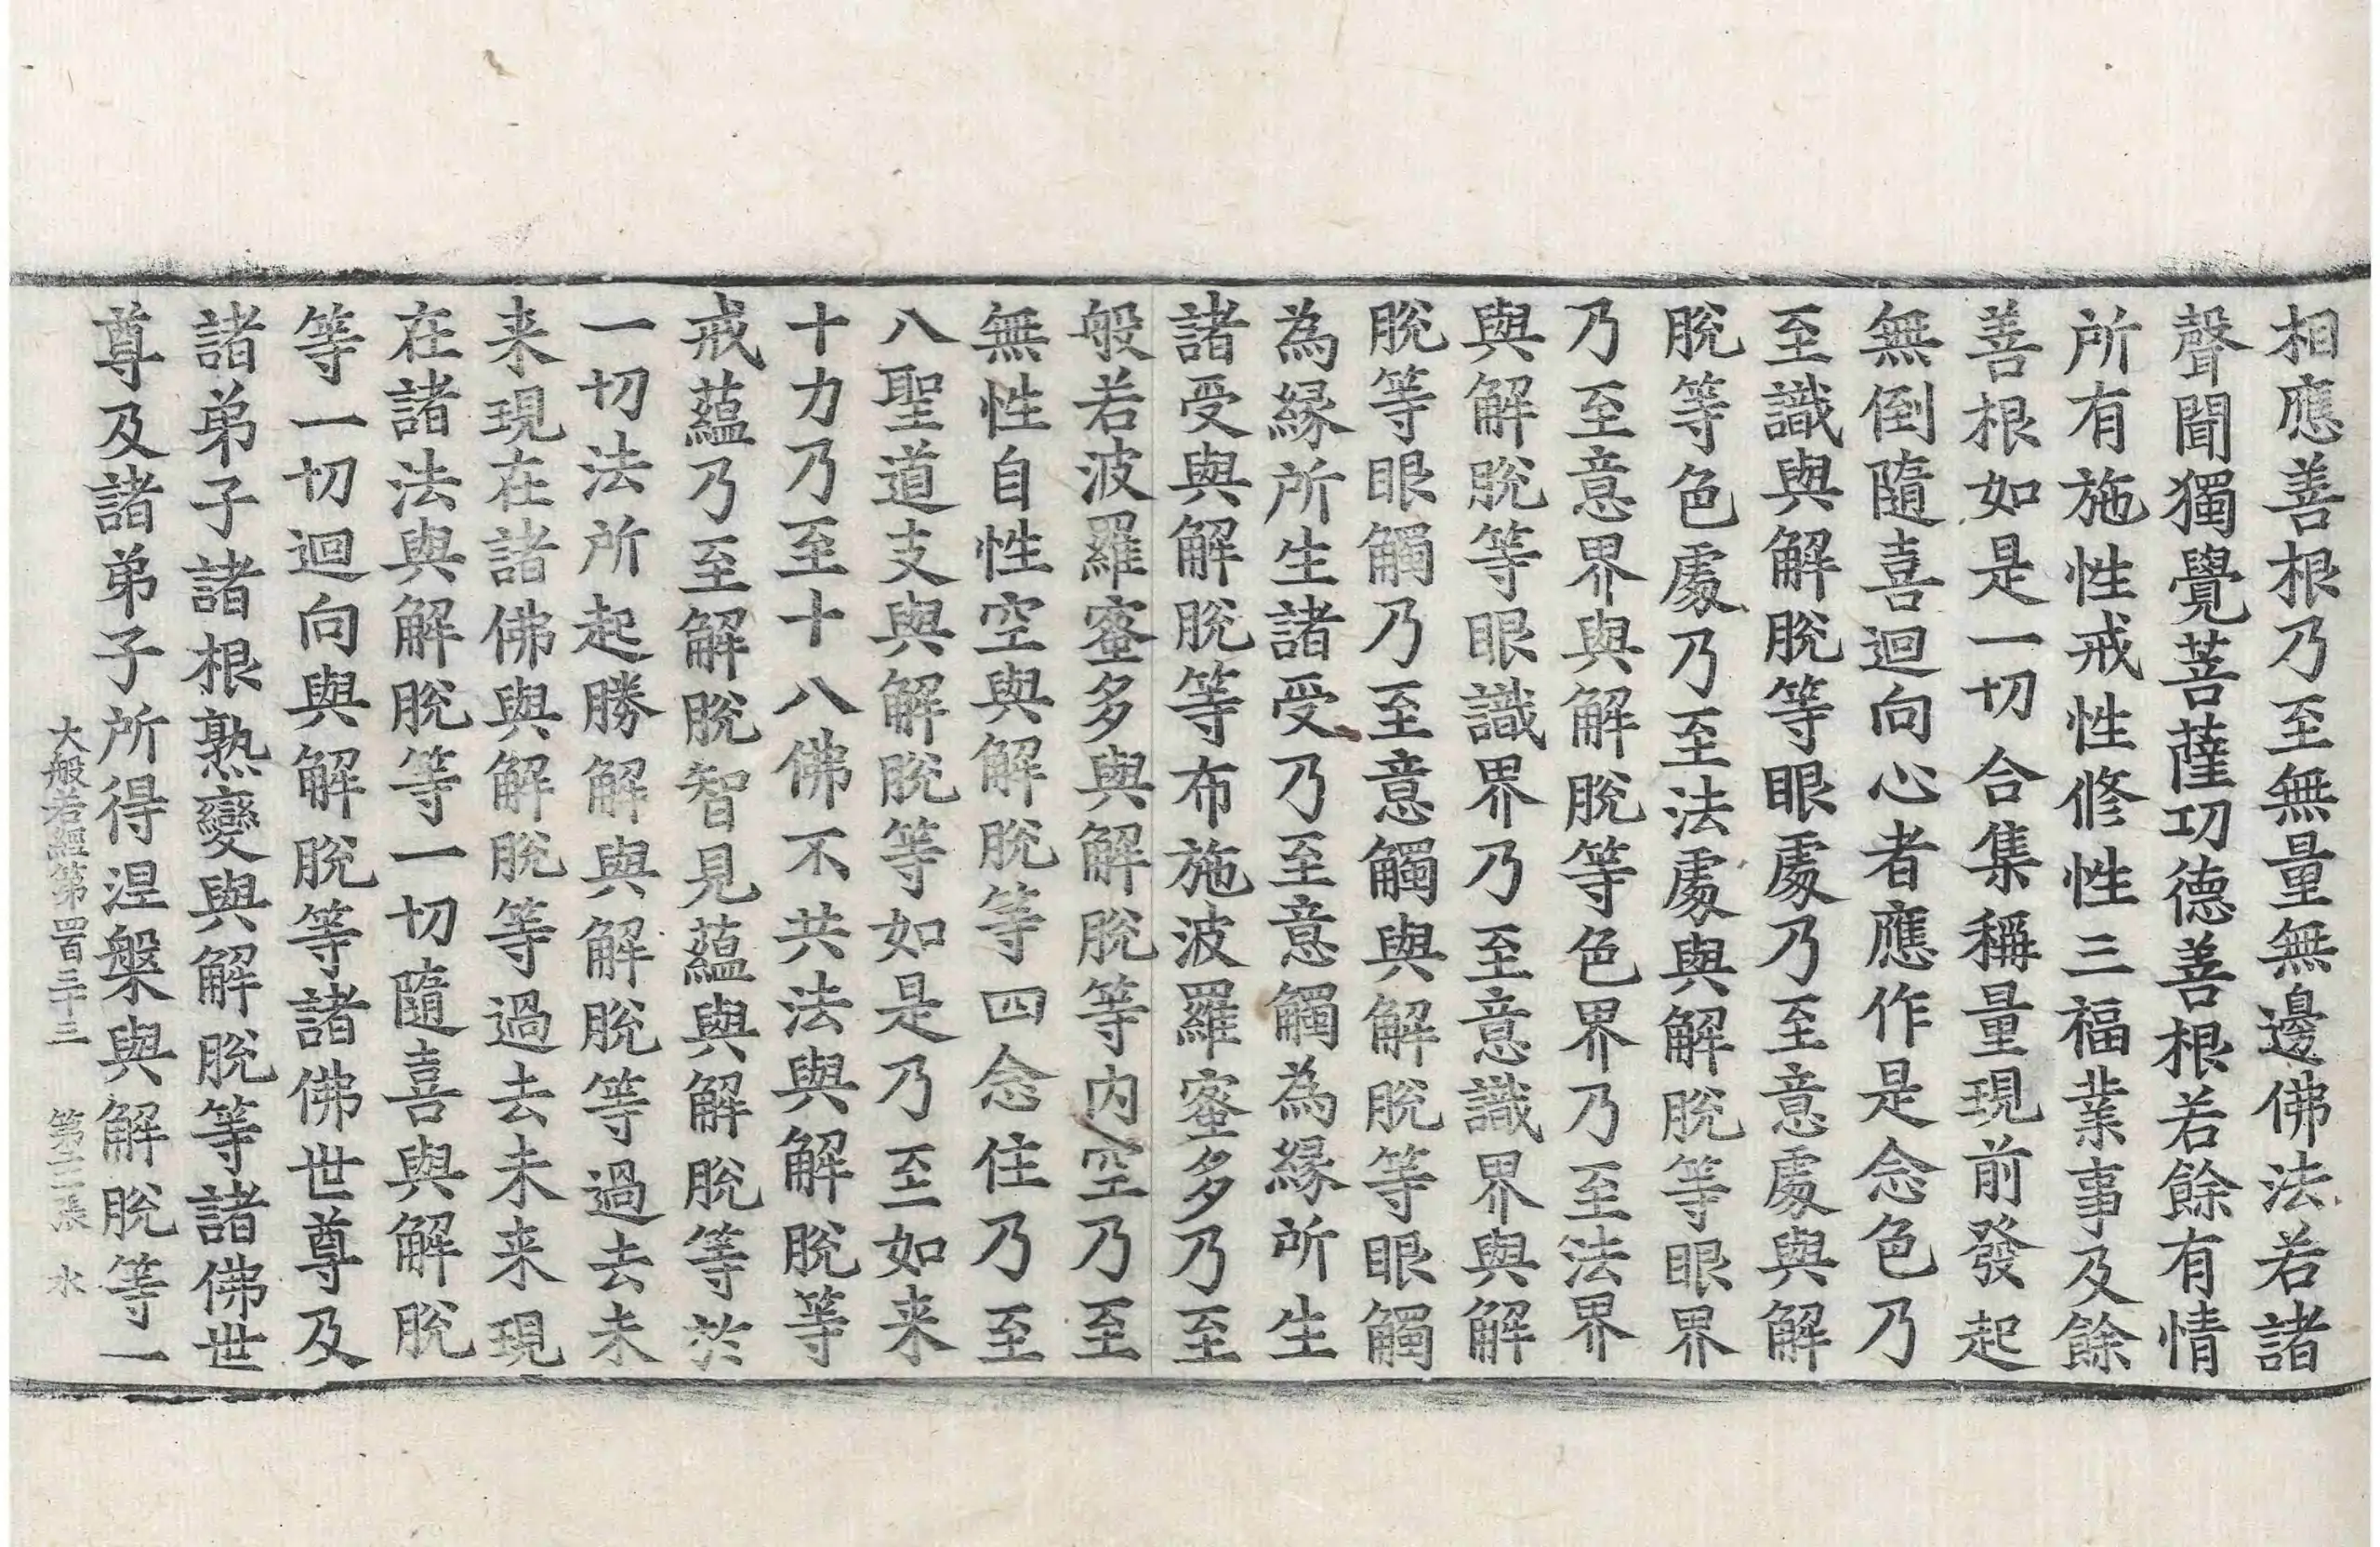 相應善根乃至無量無邊佛法若諸
聲聞獨覺菩薩功德善根若餘有情
所有施性戒性修性三福業事及餘
善根如是一切合集稱量現前發起
無倒隨喜迴向心者應作是念色乃
至識與解脫等眼處乃至意處與解
脫等色處乃至法處與解脫等眼界
乃至意界與解脫等色界乃至法界
與解脫等眼識界乃至意識界與解
脫等眼觸乃至意觸與解脫等眼觸
為緣所生諸受乃至意觸為緣所生
諸受與解脫等布施波羅蜜多乃至
般若波羅蜜多與解脫等內空乃至
無性自性空與解脫等四念住乃至
八聖道支與解脫等如是乃至如来
十力乃至十八佛不共法與解脫等
戒蘊乃至解脫智見蘊與解脫等於
一切法所起勝解與解脫等過去未
来現在諸佛與解脫等過去未来現
在諸法與解脫等一切隨喜與解脫
等一切迴向與解脫等諸佛世尊及
諸弟子諸根熟變與解脫等諸佛世
尊及諸弟子所得涅槃與解脫等一
大般若經第四百三十三 第十三張 水